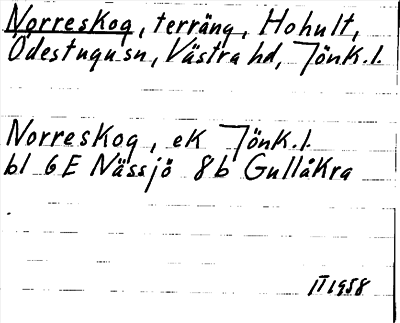 Norreskog, terräng, Hohult,
Ödestugusn, Västra hd, Jönk.l.
Norreskog, ek Jönk.l.
bl 6E Nässjö 8b Gullåkra
II 1958